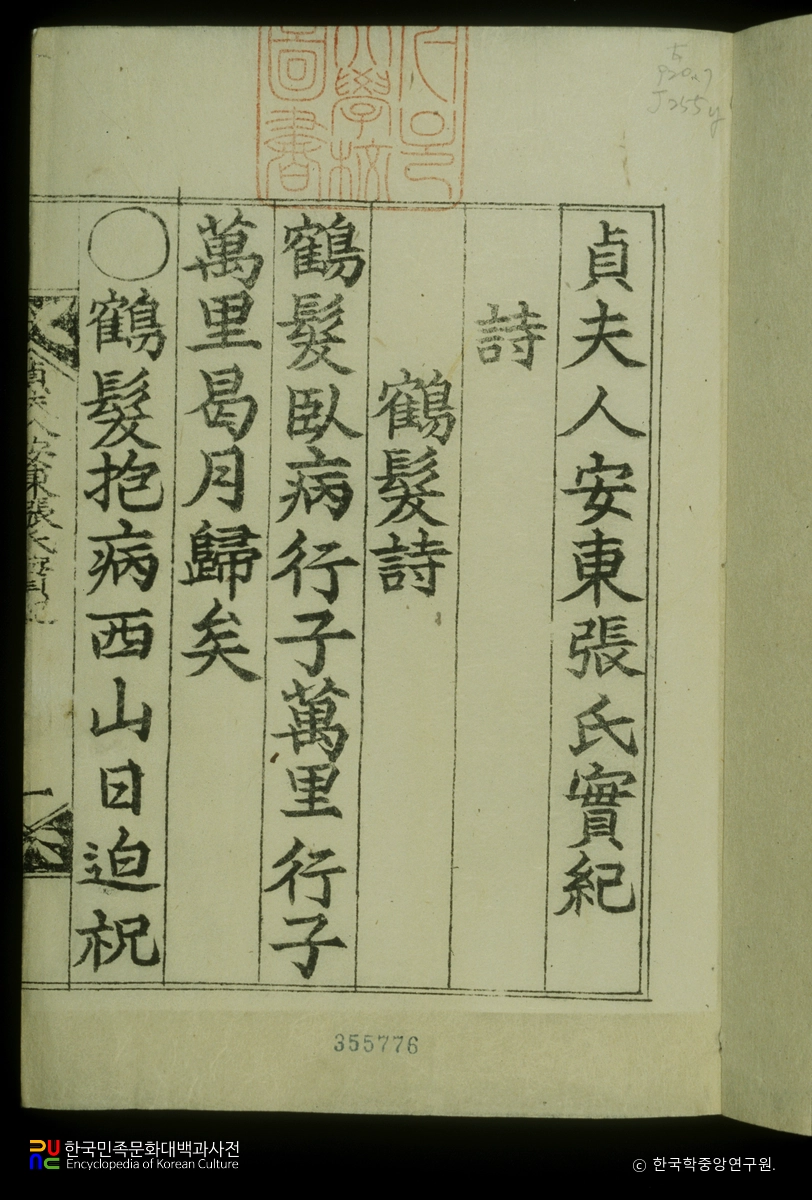 貞夫人安東張氏實紀
詩
鶴髮詩
鶴髮臥病行子萬里行子
萬里曷月歸矣
○鶴髮抱病西山日迫祝
貞夫人安東張氏實紀
一
圖書
學校
355776
한국민족문화대백과사전
Encyclopedia of Korean Culture
© 한국학중앙연구원.